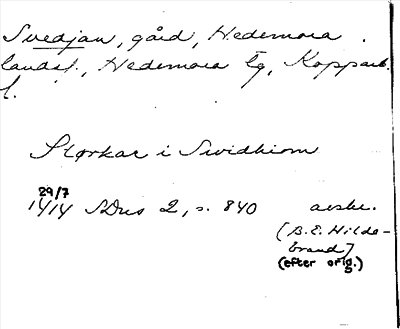 Svedjan, gård, Hedemora
landsf., Hedemora tg, Kopparb.
l.
Størkar i Swidhiom
29/7
1414 SDns 2, s. 840 avskr.
(B.E. Hilde-
brand)
(efter orig.)